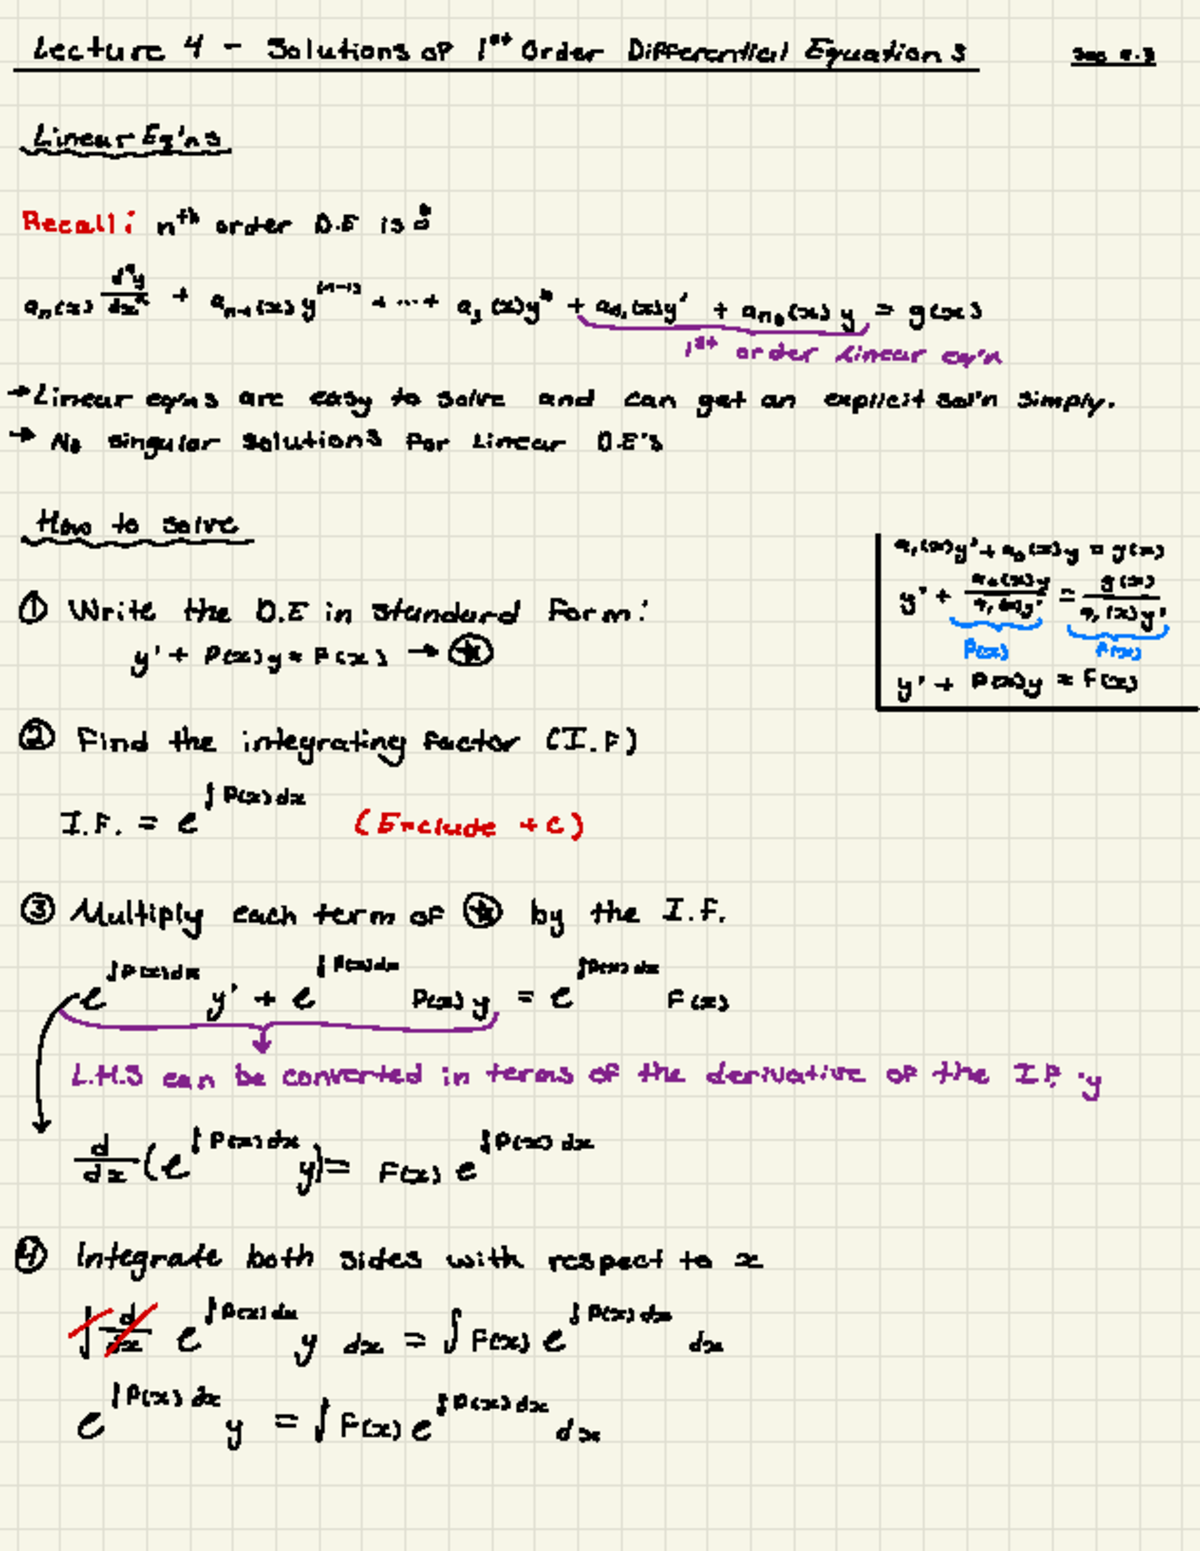 Lecture 4 - Solutions of 1st Order Differential Equations
Linear Eq'ns
Recall: nth order D.E is :
aₙ(x) dⁿy/dxⁿ + aₙ₋₁(x) y⁽ⁿ⁻¹⁾ + ... + a₂(x)y" + a₁(x)y' + a₀(x) y = g(x)
1st order linear eq'n
→ Linear eqns are easy to solve and can get an explicit sol'n simply.
→ No singular solutions for Linear D.E's
How to solve
a₁(x)y' + a₀(x)y = g(x)
y' + a₀(x)y/a₁(x)y' = g(x)/a₁(x)y'
P(x) F(x)
y' + P(x)y = F(x)
① Write the D.E in standard form:
y' + P(x)y = F(x) → ⍟
② Find the integrating factor (I.F)
I.F. = e^∫P(x)dx (Exclude +c)
③ Multiply each term of ⍟ by the I.F.
e^∫P(x)dx y' + e^∫P(x)dx P(x)y = e^∫P(x)dx F(x)
L.H.S can be converted in terms of the derivative of the I.F. · y
d/dx (e^∫P(x)dx y) = F(x) e^∫P(x)dx
④ Integrate both sides with respect to x
∫ d/dx e^∫P(x)dx y dx = ∫ F(x) e^∫P(x)dx dx
e^∫P(x)dx y = ∫ F(x) e^∫P(x)dx dx